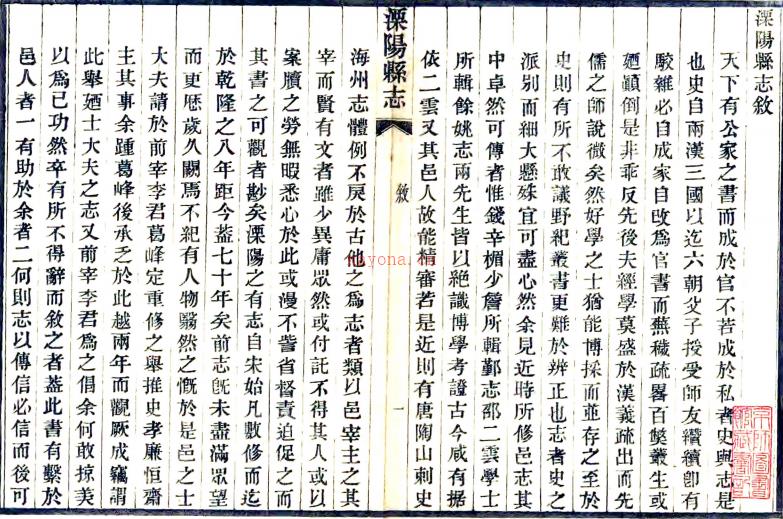 溧陽縣志敘
天下有公家之書而成於官不若成於私者史與志是
也史自兩漢三國以迄六朝父子授受師友纘續卽有
駁雜必自成家自改爲官書而蕪穢疏畧百獘叢生或
廼顚倒是非乖反先後夫經學莫盛於漢義疏出而先
儒之師說微矣然好學之士猶能博採而並存之至於
史則有所不敢議野紀叢書更難於辨正也志者史之
派别而細大懸殊宜可盡心然余見近時所修邑志其
中卓然可傳者惟錢辛楣少詹所輯鄞志邵二雲學士
所輯餘姚志兩先生皆以絶識博學考證古今咸有据
依二雲又其邑人故能精審若是近則有唐陶山刺史
溧陽縣志
敘
一
海州志體例不戾於古他之爲志者類以邑宰主之其
宰而賢有文者雖少異庸眾然或付託不得其人或以
案牘之勞無暇悉心於此或漫不訾省督責迫促之而
其書之可觀者尠矣溧陽之有志自宋始凡數修而迄
於乾隆之八年距今葢七十年矣前志旣未盡滿眾望
而更歴歲久闕焉不紀有人物翳然之慨於是邑之士
大夫請於前宰李君葛峰定重修之舉推史孝廉恒齋
主其事余踵葛峰後承乏於此越兩年而觀厥成竊謂
此舉廼士大夫之志又前宰李君爲之倡余何敢掠美
以爲已功然卒有所不得辭而敘之者葢此書有繫於
邑人者一有助於余者二何則志以傳信必信而後可